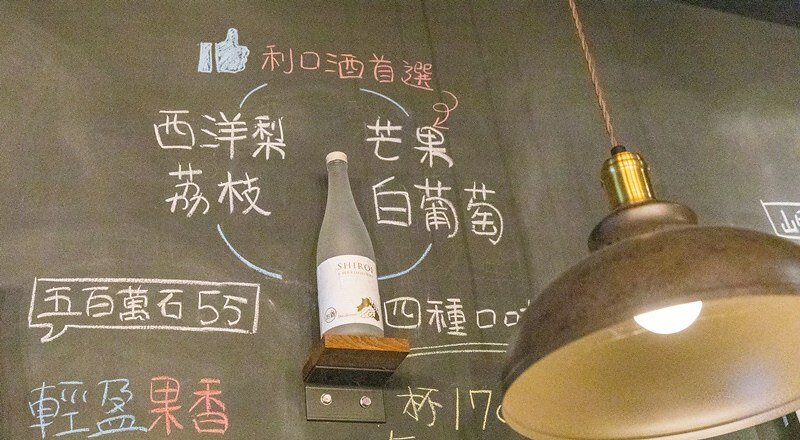 利口酒首選
西洋梨 芒果
荔枝 白葡萄
SHIROI
五百萬石55
四種口味
輕盈果香
杯170